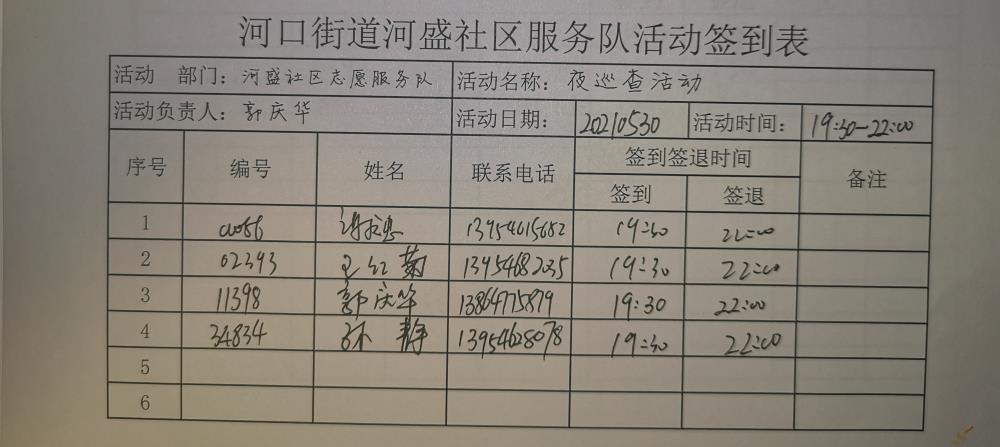 河口街道河盛社区服务队活动签到表
活动 部门：河盛社区志愿服务队 活动名称：夜巡查活动
活动负责人：郭庆华 活动日期：20210530 活动时间：19:30-22:00
序号 编号 姓名 联系电话 签到签退时间 备注
签到 签退
1 13954615682 19:30 22:00
2 02393 王红菊 13954682035 19:30 22:00
3 11398 郭庆华 13864775879 19:30 22:00
4 34834 孙静 13954628078 19:30 22:00
5
6